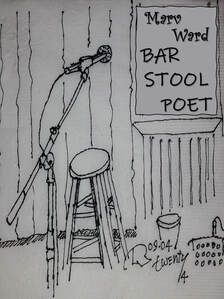 Marv
Ward
BAR
STOOL
POET
09-04
twenty
14